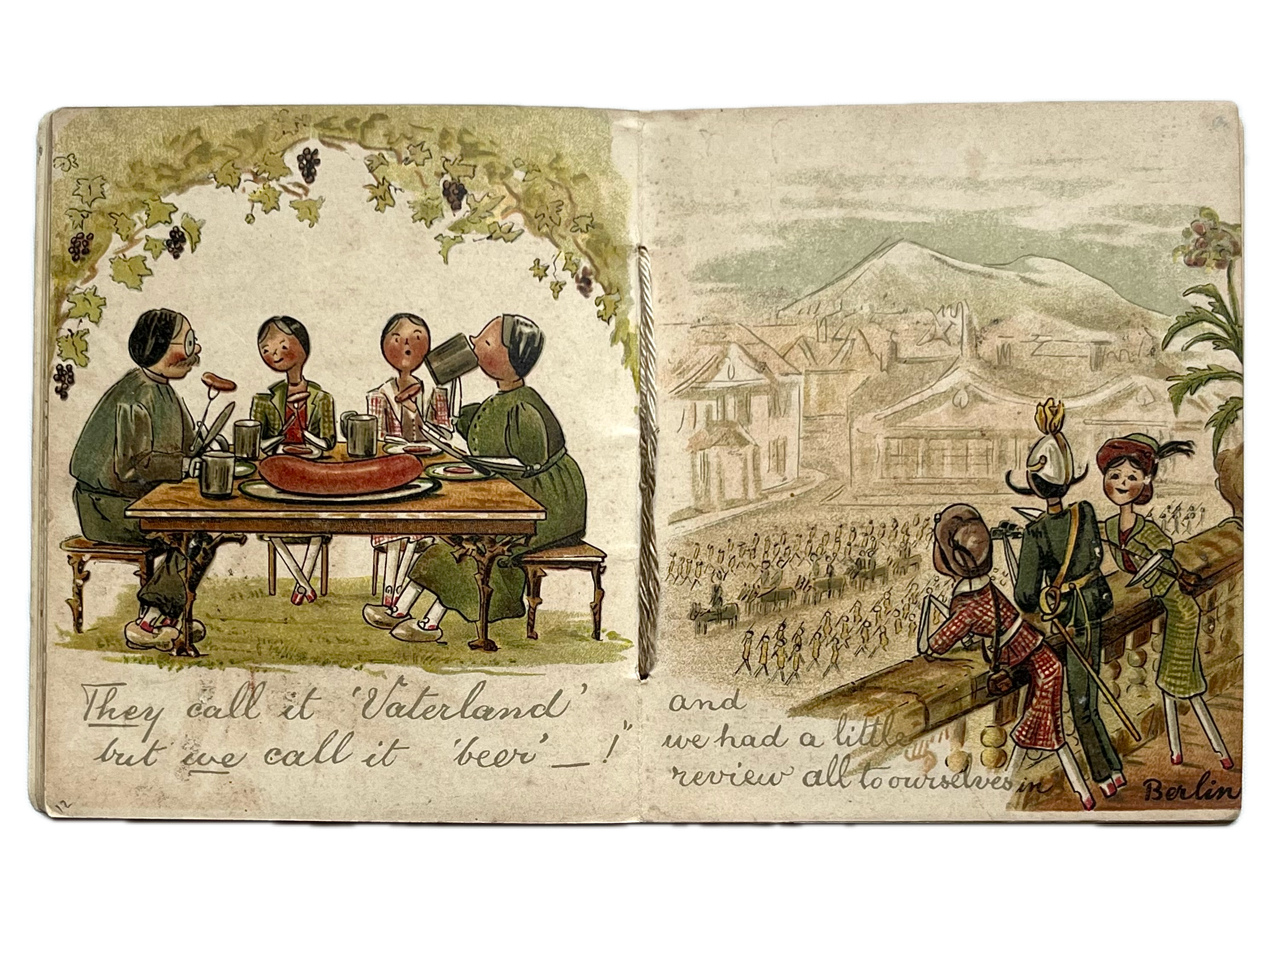 They call it 'Vaterland'
but we call it 'beer' — !"
12
and
we had a little
review all to ourselves in
Berlin